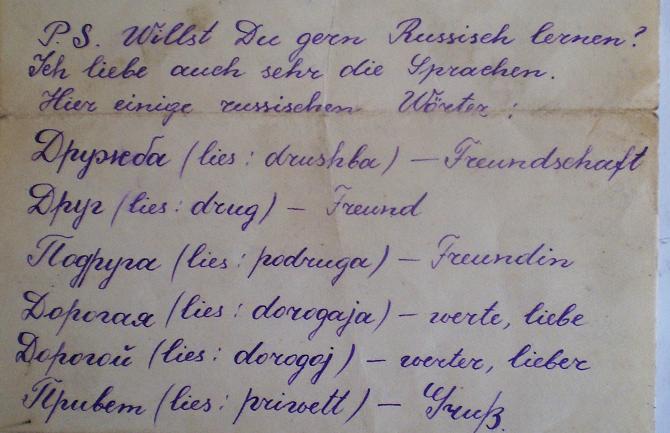 P.S. Willst Du gern Russisch lernen?
Ich liebe auch sehr die Sprachen.
Hier einige russischen Wörter:
Дружба (lies: drushba) — Freundschaft
Друг (lies: drug) — Freund
Подруга (lies: podruga) — Freundin
Дорогая (lies: dorogaja) — werte, liebe
Дорогой (lies: dorogoj) — werter, lieber
Привет (lies: priwett) — Gruß.